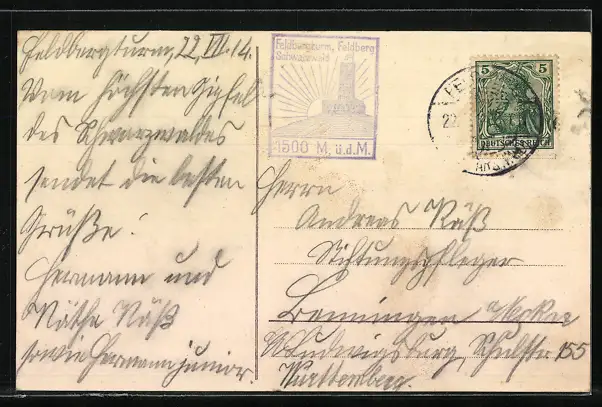 Feldbergturm, 22. VII. 14.
Vom höchsten Gipfel
des Schwarzwaldes
sendet die besten
Grüße!
Hermann und
Käthe Käß
sowie Hermann junior.
Feldbergturm, Feldberg
Schwarzwald
1500 M. ü.d.M.
5 5
DEUTSCHES REICH
Herrn
Andreas Käß
Stiftungspfleger
Ludwigsburg, Schulstr 155
Württemberg.